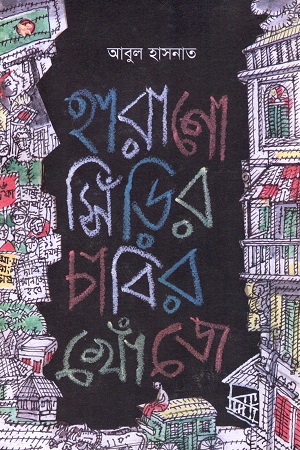 আবুল হাসনাত
হারানো
সিঁড়ির
চাবির
খোঁজে